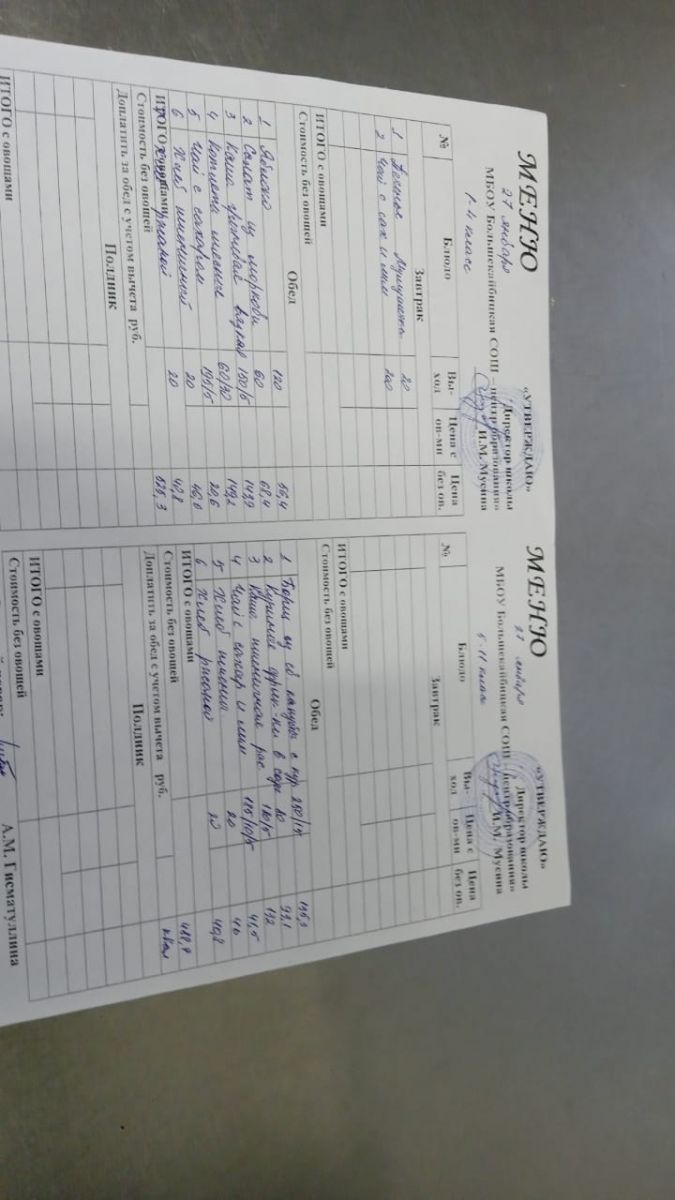 МЕНЮ
27 января
МБОУ Большекайбицкая СОШ –
1-4 класс
«УТВЕРЖДАЮ»
Директор школы
центр образования»
И.М. Мусина
№ Блюдо Вы-ход Цена с ов-ми Цена без ов.
Завтрак
1 Печенье 20
2 Чай с сах и лим 200
ИТОГО с овощами
Стоимость без овощей
Обед
1 Яблоко 120 56,4
2 Салат из моркови 60 68,4
3 Каша гречневая 150/5 143,9
4 Котлета мясная 60/30 149,2
5 Чай с сахаром 195/5 20,6
6 Хлеб пшеничный 20 46,0
Хлеб ржаной 20 40,8
ИТОГО с овощами 525,3
Стоимость без овощей
Доплатить за обед с учетом вычета руб.
Полдник
ИТОГО с овощами
МЕНЮ
27 января
МБОУ Большекайбицкая СОШ –
5-11 класс
«УТВЕРЖДАЮ»
Директор школы
центр образования»
И.М. Мусина
№ Блюдо Вы-ход Цена с ов-ми Цена без ов.
Завтрак
ИТОГО с овощами
Стоимость без овощей
Обед
1 Борщ из св капусты с кур 250/15
2 Куриные в
3 Каша пшеничная рас 150/5
4 Чай с сахар и лим
5 Хлеб пшенич 20 46
6 Хлеб ржаной 20 40,8
ИТОГО с овощами
Стоимость без овощей ккал
Доплатить за обед с учетом вычета руб.
Полдник
ИТОГО с овощами
Стоимость без овощей
А.М. Гисматуллина